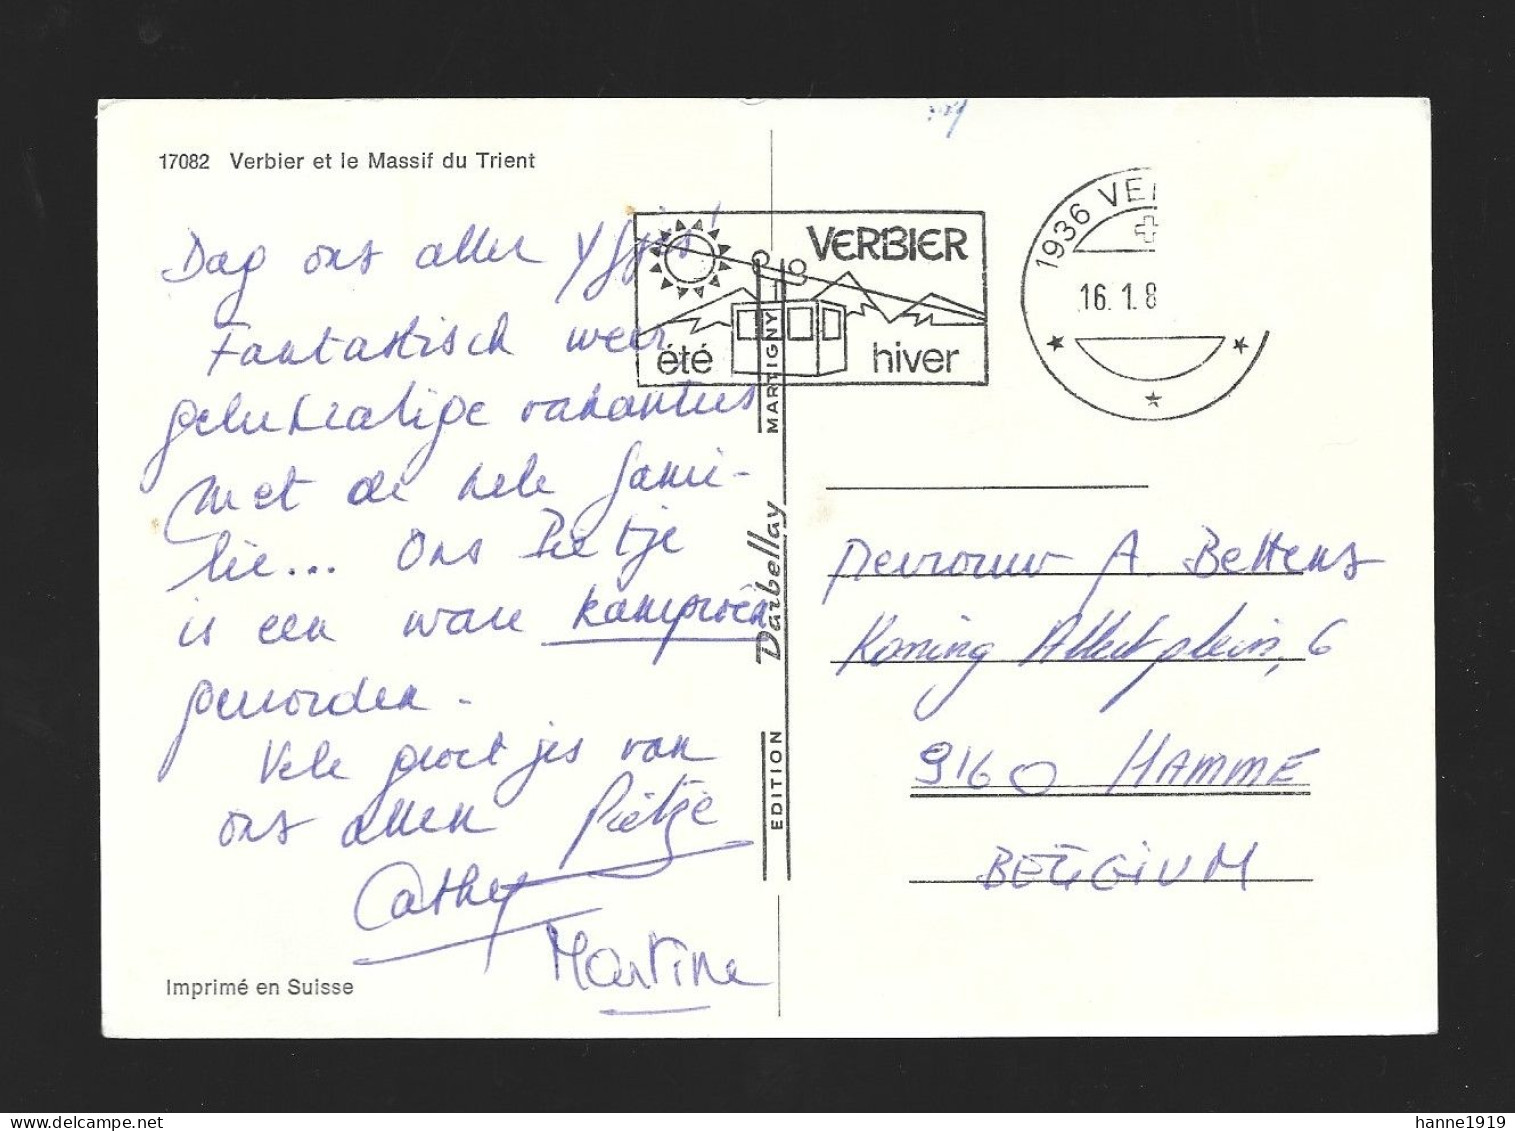 17082 Verbier et le Massif du Trient
Dag ons aller
Fantastisch weer
gelukzalige vakanties
Met de hele fami-
lie... Ons Pietje
is een ware kampioen
geworden.
Vele groetjes van
ons allen Pietje
Cathy
Martine
Imprimé en Suisse
EDITION Darbellay MARTIGNY
VERBIER
été hiver
1936 VE
16.1.8
Mevrouw A. Bettens
Koning Albertplein, 6
9160 HAMME
BELGIUM
hanne1919